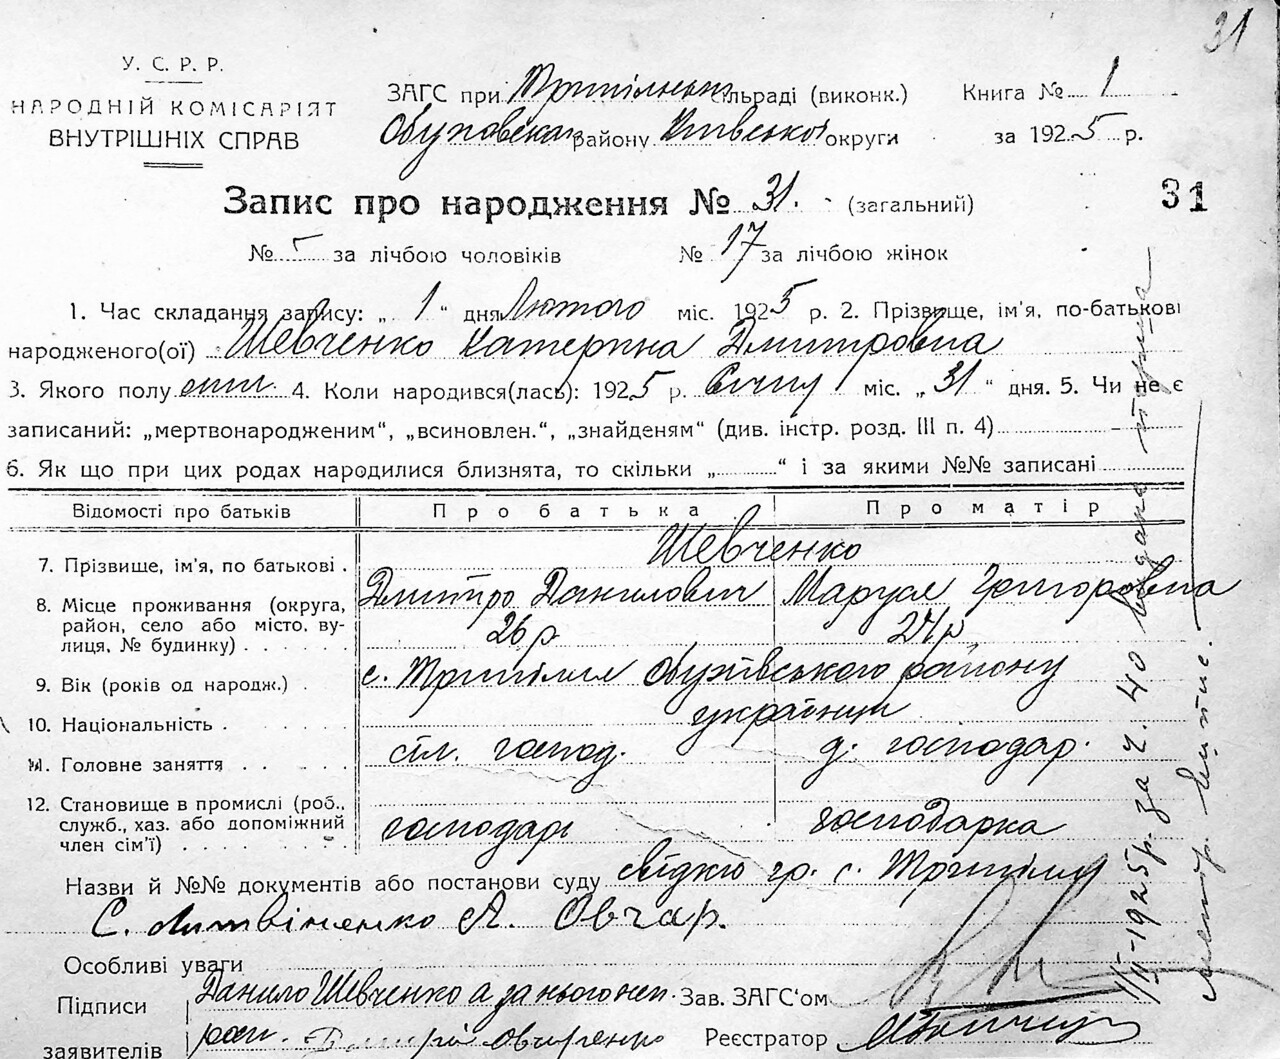 31
У. С. Р. Р.
НАРОДНІЙ КОМІСАРІЯТ
ВНУТРІШНІХ СПРАВ
ЗАГС при Трипільській сільраді (виконк.) Книга № 1
району Київської округи за 1925 р.
Запис про народження № 31. (загальний) 31
№ за лічбою чоловіків № 17 за лічбою жінок
1. Час складання запису: „ 1 “ дня Лютого міс. 1925 р. 2. Прізвище, ім'я, по-батькові
народженого(ої) Шевченко Катерина Дмитровна
3. Якого полу 4. Коли народився(лась): 1925 р. Січня міс. „ 31 “ дня. 5. Чи не є
записаний: „мертвонародженим“, „всиновлен.“, „знайденям“ (див. інстр. розд. III п. 4)
6. Як що при цих родах народилися близнята, то скільки „ “ і за якими №№ записані
Відомості про батьків Про батька Про матір
Шевченко
7. Прізвище, ім'я, по батькові . Дмитро Данилович Маруся Григоровна
8. Місце проживання (округа, район, село або місто, вулиця, № будинку) 26 р. 24 р
9. Вік (років од народж.) . с. Трипілля Обухівського району
10. Національність . українці
11. Головне заняття сіл. господ. д. господар.
12. Становище в промислі (роб., служб., хаз. або допоміжний член сім'ї) господарь господарка
Назви й №№ документів або постанови суду свідки гр. с. Трипілля
С. Литвіненко А. Овчар.
Особливі уваги
Підписи Данило Шевченко а за нього неп Зав. ЗАГС'ом
заявителів Овчаренко Реєстратор
1925 р. за ч. 40 видано